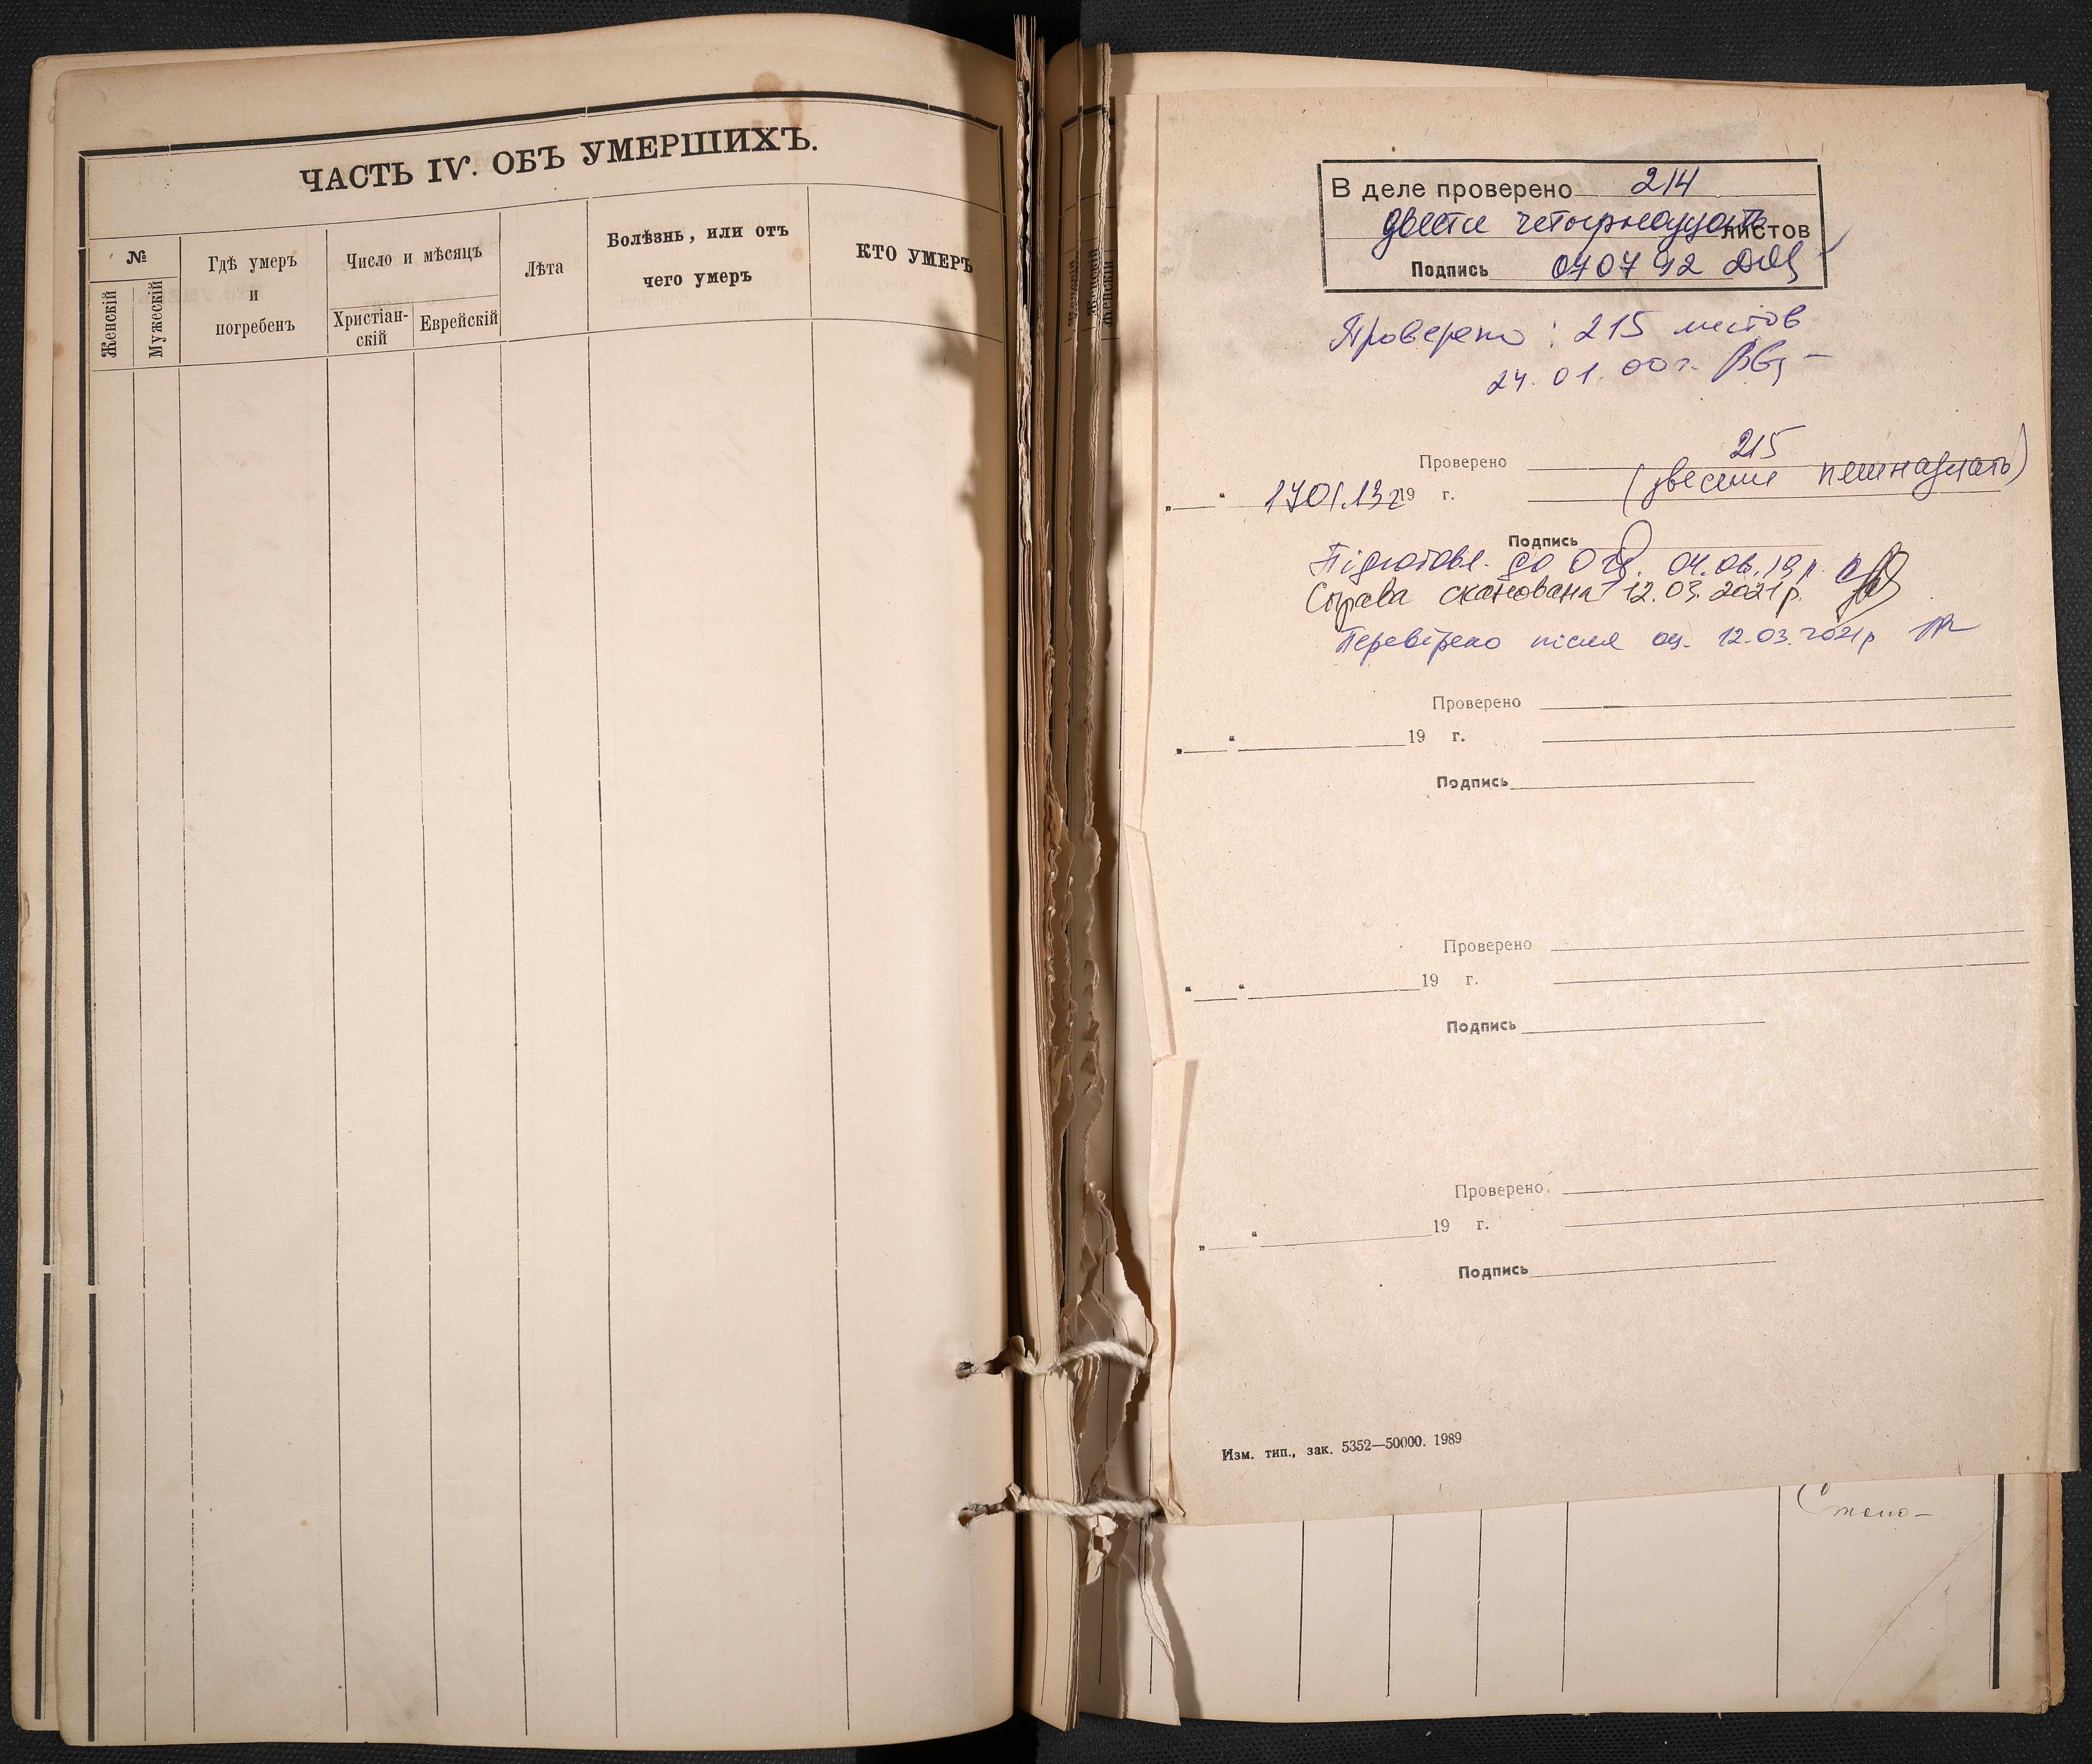 ЧАСТЬ IV. ОБЪ УМЕРШИХЪ.
№
Женскій
Мужескій
Гдѣ умеръ
и
погребенъ
Число и мѣсяцъ
Христіан-
скій
Еврейскій
Лѣта
Болѣзнь, или отъ
чего умеръ
КТО УМЕРЪ
В деле проверено 214
двести четырнадцать листов
Подпись 07 07 92
Проверено: 215 листов
24.01.00 г.
Проверено 215
„ “ 17 01.13 г 19 г. (двести пятнадцать)
Подпись
Підготовл. до 04.06.19 р.
Справа сканована 12.03.2021 р.
Перевірено після 12.03.2021 р
Проверено
„ “ 19 г.
Подпись
Проверено
“ “ 19 г.
Подпись
Проверено
„ “ 19 г.
Подпись
Изм. тип., зак. 5352—50000. 1989